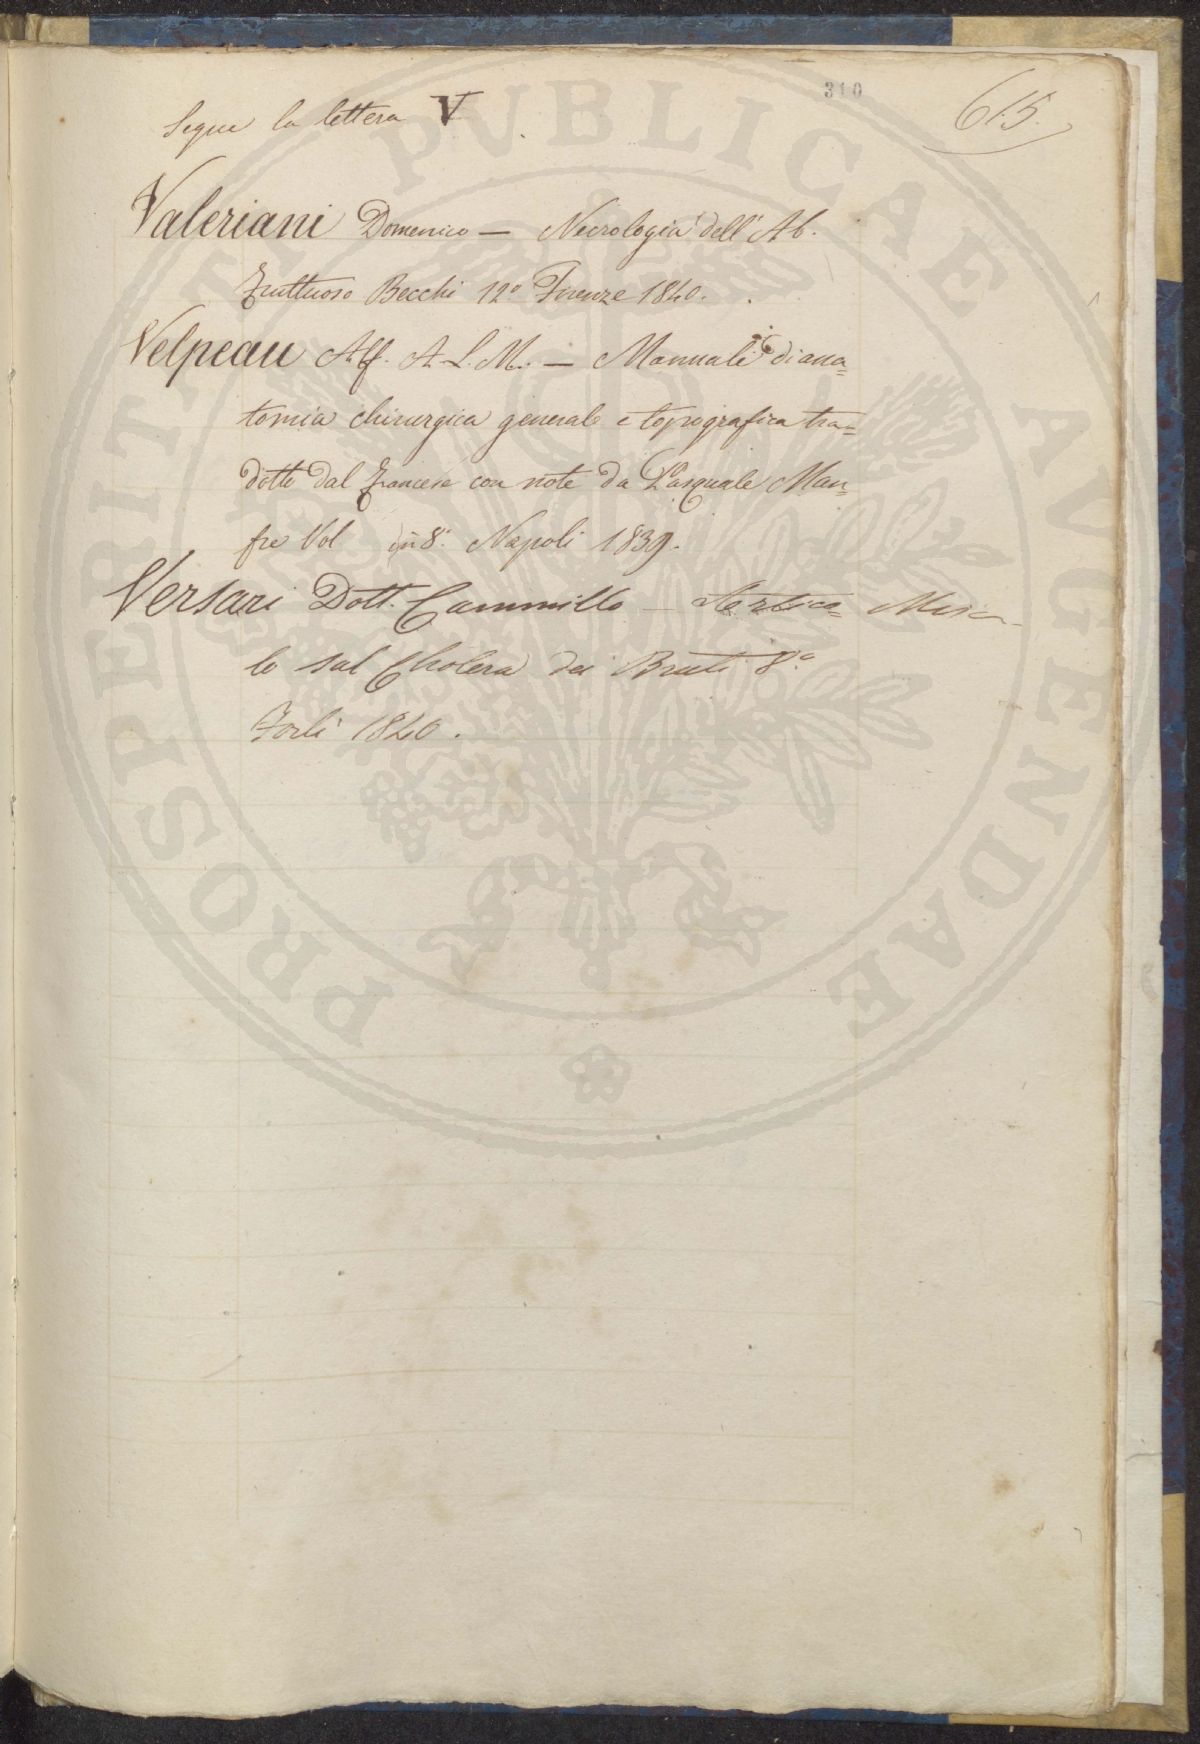 310
615.
Segue la lettera V
Valeriani Domenico — Necrologia dell' Ab.
Fruttuoso Becchi 12º Firenze 1840.
Velpeau Alf. A. L. M. — Manuale di ana=
tomia chirurgica generale e topografica tra=
dotto dal Francese con note da Pasquale Man=
fre Vol in 8.º Napoli 1839.
Versari Dott. Cammillo —
lo sul Cholera dei Bruti 8.º
Forlì 1840.
PROSPERITATI PUBLICAE AUGENDAE